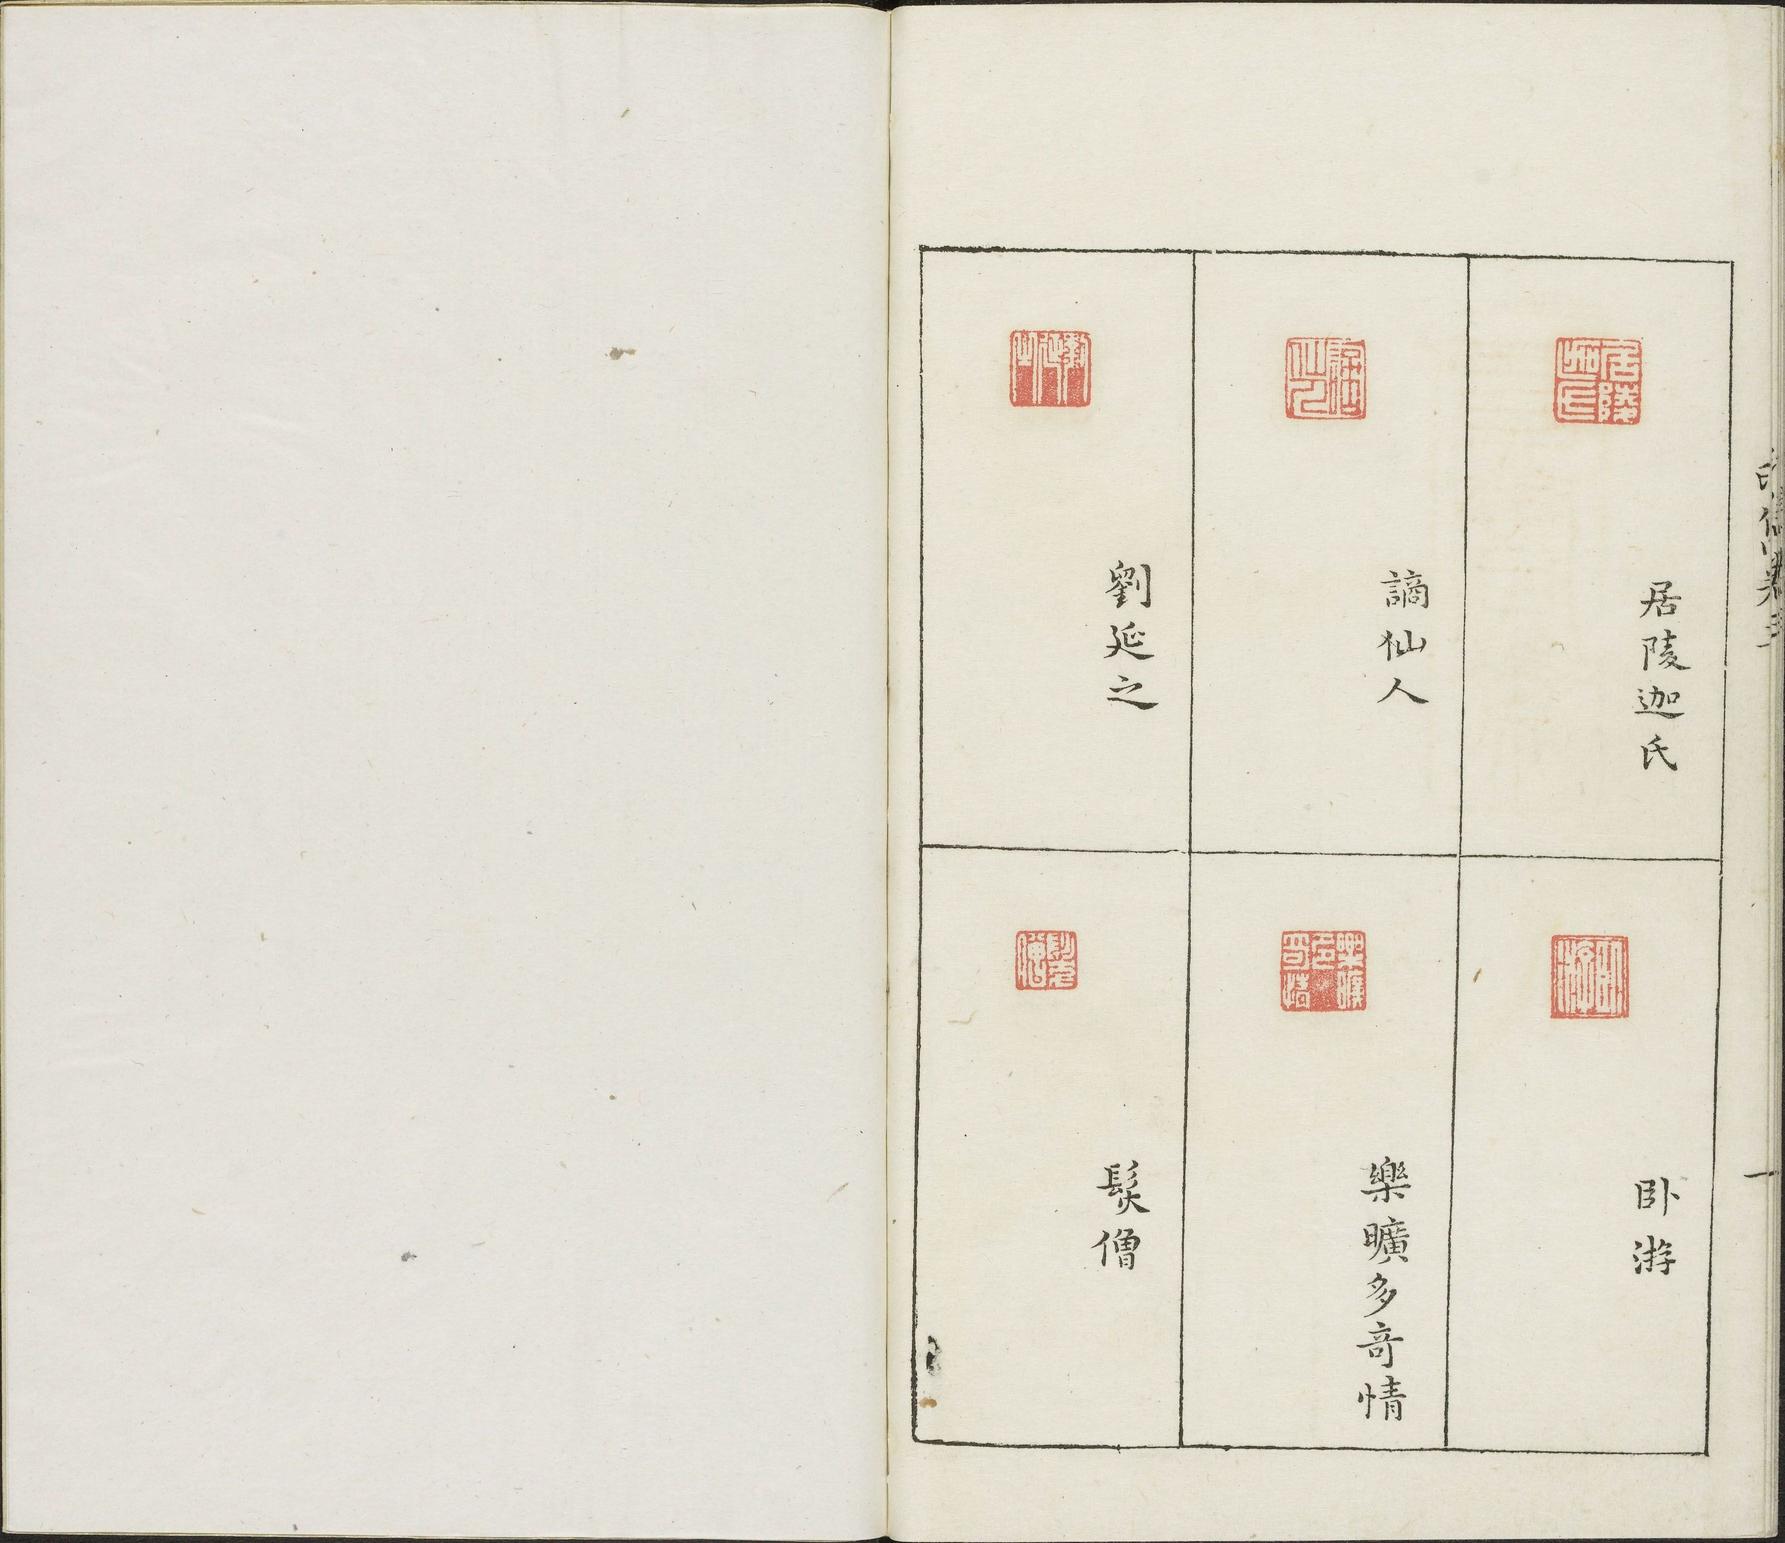 居陵迦氏
謫仙人
劉延之
卧游
樂曠多奇情
髮僧
一